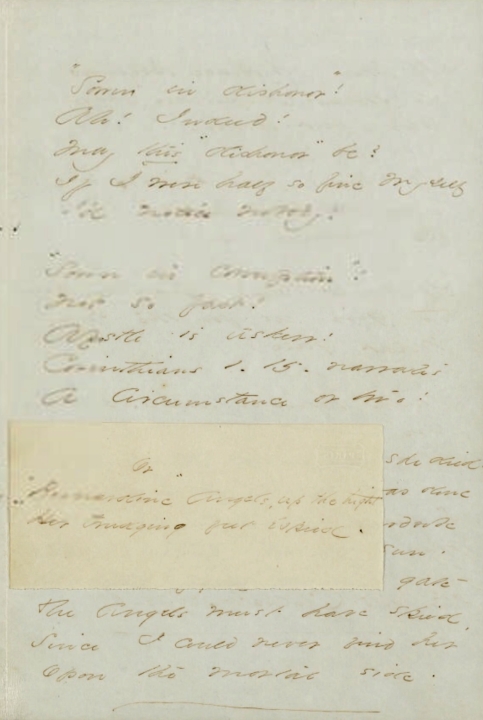 "Sown in dishonor"!
Ah! Indeed!
May this "dishonor" be?
If I were half so fine myself
I'd notice nobody!
"Sown in corruption"!
Not so fast!
Apostle is askew!
Corinthians 1. 15. narrates
A Circumstance or two!
she died
Or
"Bernardine" Angels, up the hight
Her trudging feet espied.
as done
sun.
gate
The Angels must have spied,
Since I could never find her
Upon the mortal side.